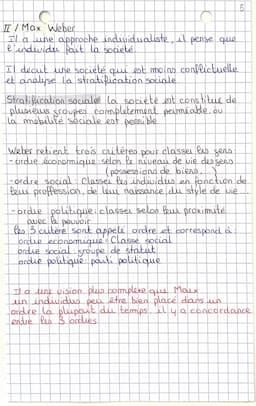 5
II / Max Weber
Il a une approche individualiste, il pense que
l'individu fait la société
Il décrit une société qui est moins conflictuelle
et analyse la stratification sociale
Stratification sociale: la société est constitué de
plusieurs groupes complètement perméable ou
la mobilité sociale est possible
Weber retient trois critères pour classer les gens
- ordre économique selon le niveau de vie des gens
(possessions de biens...)
- ordre social: Classer les individus en fonction de
leur proffession, de leur naissance du style de vie
- ordre politique: classer selon leur proximité
avec le pouvoir
Les 3 critère sont appelé ordre et correspond à
ordre economique: Classe social
ordre social: groupe de statut
ordre politique: parti politique
Il a une vision plus complexe que Marx
un individus peu être bien placé dans un
ordre la plupart du temps il y a concordance
entre les 3 ordres